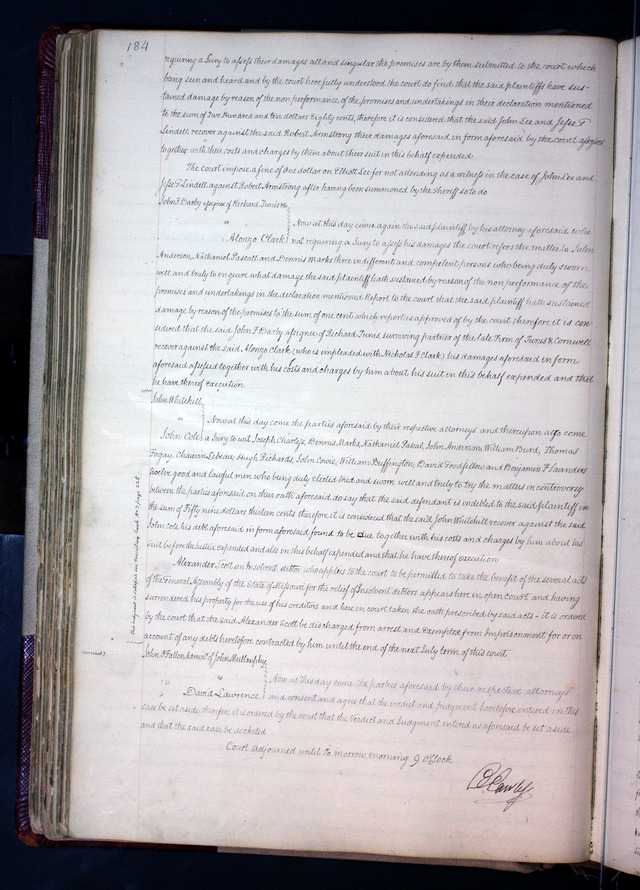 184
requiring a Jury to assess their damages all and singular the promises are by them submitted to the court which
being seen and heard and by the court here fully understood the court do find that the said plaintiffs have sus-
tained damage by reason of the non performance of the promises and undertakings in their declaration mentioned
to the sum of Two Hundred and ten dollars Eighty cents, therefore it is considered that the said John Lee and Jesse G
Lindell recover against the said Robert Armstrong their damages aforesaid in form aforesaid by the court assessed
together with their costs and charges by them about their suit in this behalf expended
The court impose a fine of one dollar on Elliott Lee for not attending as a witness in the case of John Lee and
Jesse G Lindell against Robert Armstrong after having been summoned by the Sheriff so to do
John F. Darby assignee of Richard Tunis
vs
Now at this day come again the said plaintiff by his attorney aforesaid who
Alonzo Clark not requiring a Jury to assess his damages the court refers the matter to John
Anderson, Nathaniel Pascall and Dennis Marks three indifferent and competent persons who being duly sworn
well and truly to inquire what damage the said plaintiff hath sustained by reason of the non performance of the
promises and undertakings in the declaration mentioned Report to the court that the said plaintiff hath sustained
damage by reason of the premises to the sum of one cent which report is approved of by the court therefore it is con-
sidered that the said John F Darby assignee of Richard Tunis surviving partner of the late Farm of Tunis & Cornwell
recover against the said Alonzo Clark (who is impleaded with Nicholas F Clark) his damages aforesaid in form
aforesaid assessed together with his costs and charges by him about his suit in this behalf expended and that
he have thereof execution
John Whitehill
vs
Now at this day come the parties aforesaid by their respective attorneys and thereupon also come
John Cole a Jury to wit Joseph Charless, Dennis Marks, Nathaniel Pascal, John Anderson, William Burd, Thomas
Fogay, Lebeau, Hugh Richards, John Cowie, William Buffington, David Goodfellow and Benjamin F Saunders
twelve good and lawful men who being duly elected tried and sworn well and truly to try the matters in controversy
between the parties aforesaid on their oath aforesaid do say that the said defendant is indebted to the said plaintiff in
the sum of Fifty nine dollars thirteen cents therefore it is considered that the said John Whitehill recover against the said
John Cole his debt aforesaid in form aforesaid found to be due together with his costs and charges by him about his
suit before the Justice expended and also in this behalf expended and that he have thereof execution
Alexander Scott an Insolvent debtor who applies to the court to be permitted to take the benefit of the several acts
of the General Assembly of the State of Missouri for the relief of Insolvent debtors appears here in open court and having
surrendered his property for the use of his creditors and here in court taken the oath prescribed by said acts - it is ordered
by the court that the said Alexander Scott be discharged from arrest and exempted from Imprisonment for or on
account of any debts heretofore contracted by him until the end of the next July term of this court
John O Fallon admin of John Mullanphy
vs
Now at this day come the parties aforesaid by their respective attorneys
David Lawrence and consent and agree that the verdict and Judgment heretofore entered in this
case be set aside therefore it is ordered by the court that the Verdict and Judgment entered as aforesaid be set aside
and that the said case be docketed
Court Adjourned until To morrow morning 9 O'Clock